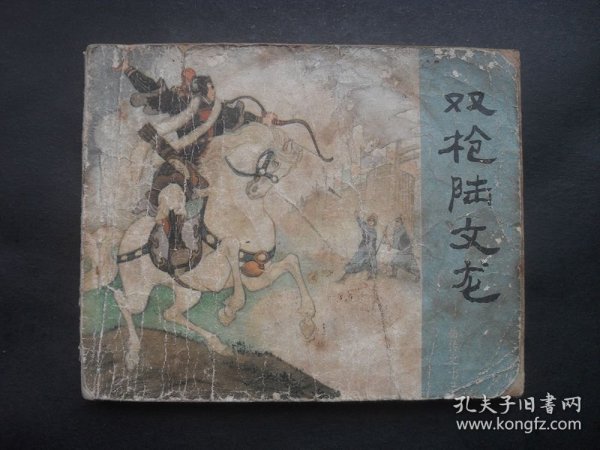 双枪陆文龙
孔夫子旧書网
www.kongfz.com